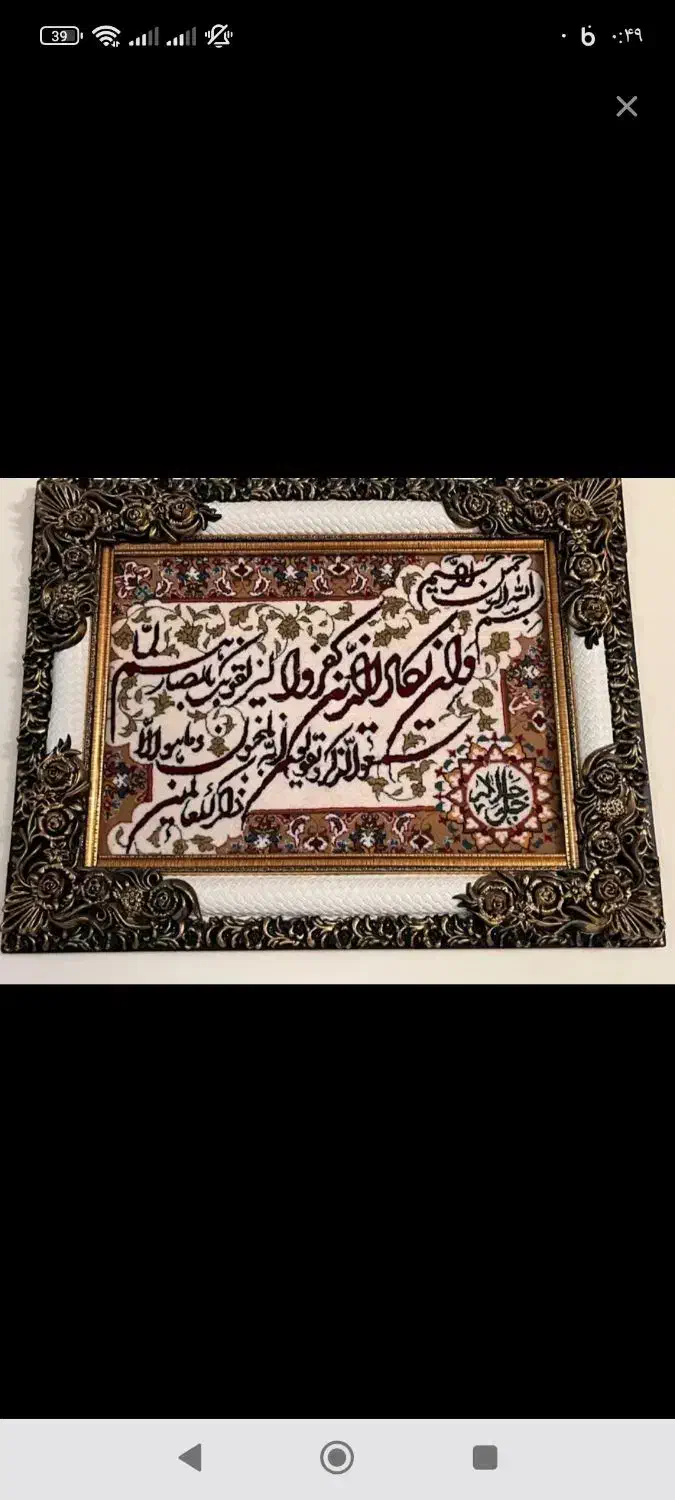 39
۰:۴۹
بسم الله الرحمن الرحیم
وان یکاد الذین کفروا لیزلقونک بابصارهم لما
سمعوا الذکر و یقولون انه لمجنون و ما هو الا
ذکر للعالمین
جل جلاله